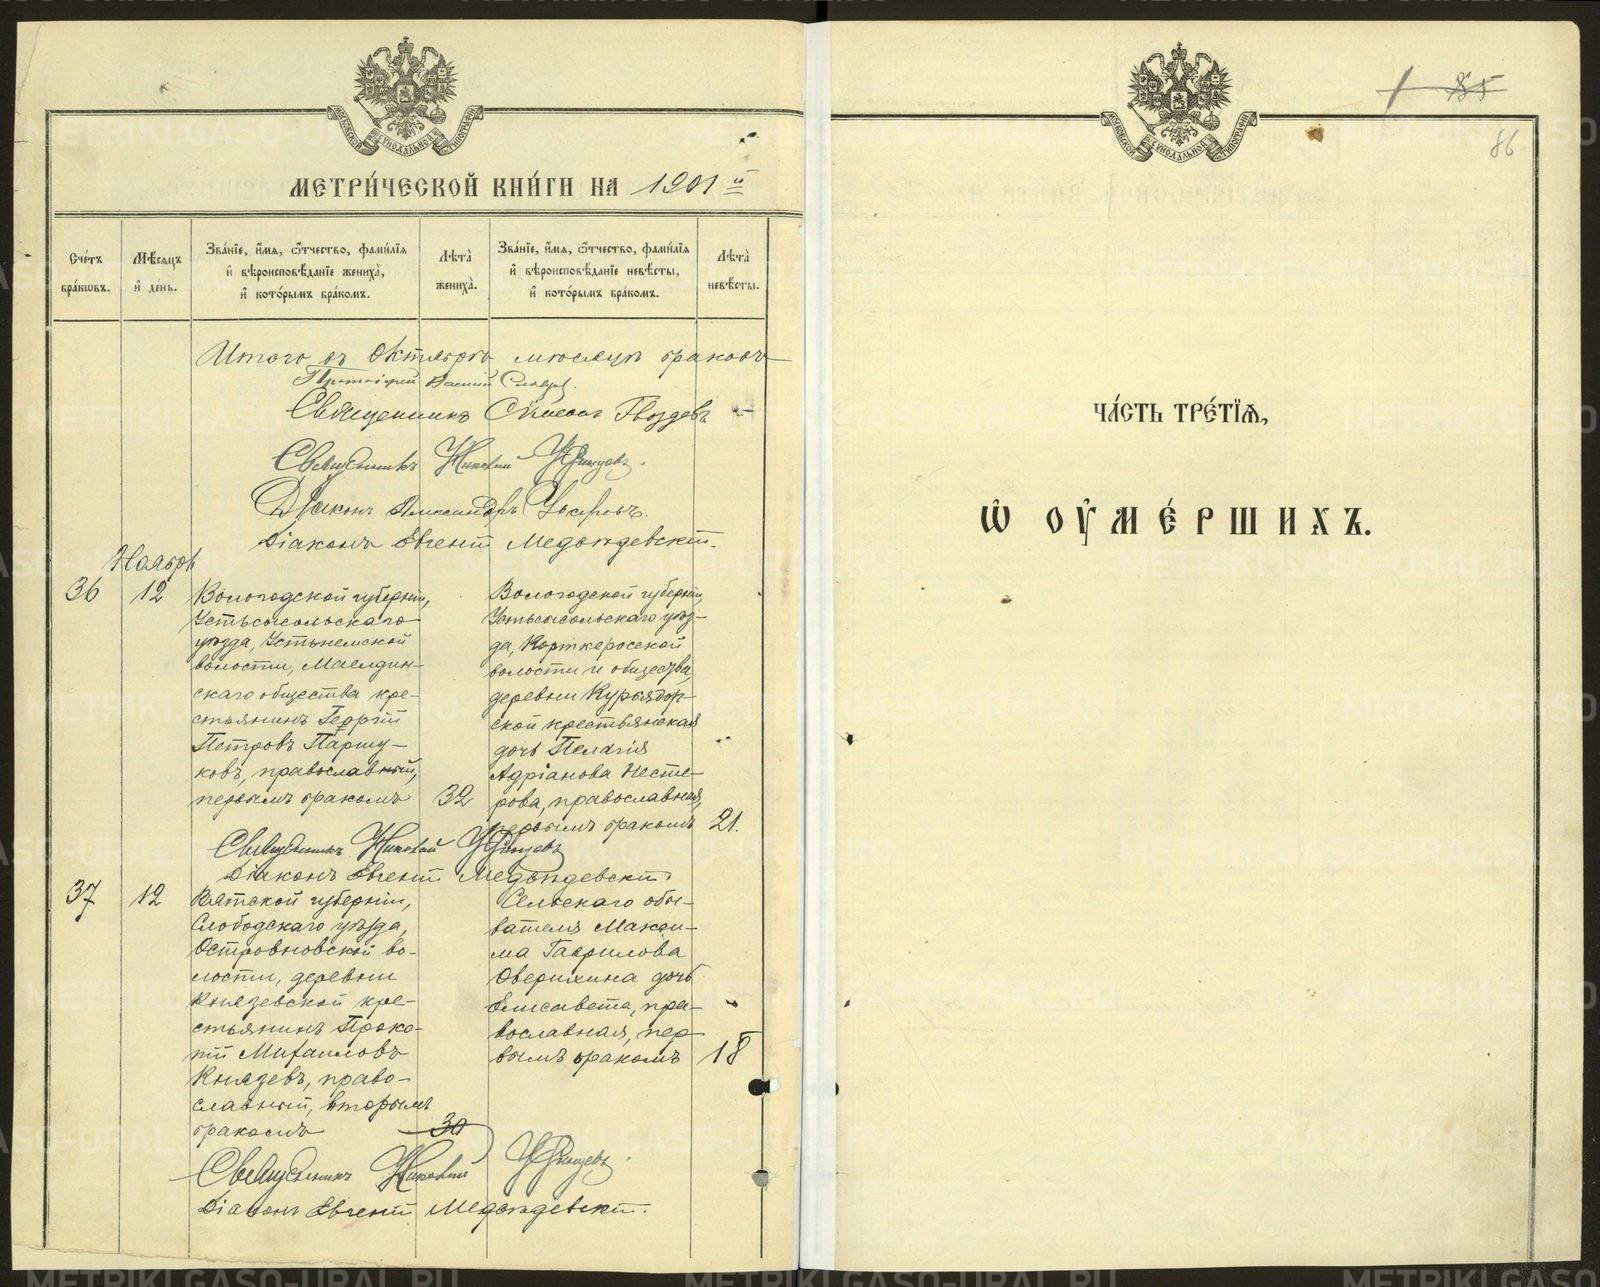 МОСКОВСКОЙ СѴНОДАЛЬНОЙ ТИПОГРАФІИ
МЕТРИ́ЧЕСКОЙ КНИ́ГИ НА 1901 й
Сче́тъ бра́кѡвъ.
Мѣ́сяцъ и҆ де́нь.
Зва́нїе, и҆́мѧ, ѻ҆́тчество, фами́лїѧ и҆ вѣроисповѣ́данїе жениха̀, и҆ кото́рымъ бра́комъ.
Лѣ́та̀ жениха̀.
Зва́нїе, и҆́мѧ, ѻ҆́тчество, фами́лїѧ и҆ вѣроисповѣ́данїе невѣ́сты, и҆ кото́рымъ бра́комъ.
Лѣ́та̀ невѣ́сты.
Итого въ Октябрѣ мѣсяцѣ браковъ
Священникъ Гвоздевъ
Священникъ Николай
Діаконъ Александръ
Діаконъ Евгеній Медвѣдевскій.
Ноябрь
36
12
Вологодской губерніи,
Устьсысольскаго
уѣзда, Устьнемской
волости, Маелдин-
скаго общества кре-
стьянинъ Георгій
Петровъ Паршу-
ковъ, православный,
первымъ бракомъ
32
Вологодской губерніи,
Устьсысольскаго уѣз-
да, Корткеросской
волости и общества,
деревни Курьядор-
ской крестьянская
дочь Пелагія
Адріанова Несте-
рова, православная,
первымъ бракомъ
21.
Священникъ Николай
Діаконъ Евгеній Медвѣдевскій.
37
12
Вятской губерніи,
Слободскаго уѣзда,
Островновской во-
лости, деревни
Князевской кре-
стьянинъ Проко-
пій Михаиловъ
Князевъ, право-
славный, вторымъ
бракомъ
30
Сельскаго обы-
вателя Макси-
ма Гаврилова
Оверихина дочь
Елисавета, пра-
вославная, пер-
вымъ бракомъ
18
Священникъ Николай
Діаконъ Евгеній Медвѣдевскій.
МОСКОВСКОЙ СѴНОДАЛЬНОЙ ТИПОГРАФІИ
185
86
ЧА́СТЬ ТРЕ́ТЇѦ,
Ѡ҆ ОУ҆МЕ́РШИХЪ.
METRIKI.GASO-URAL.RU